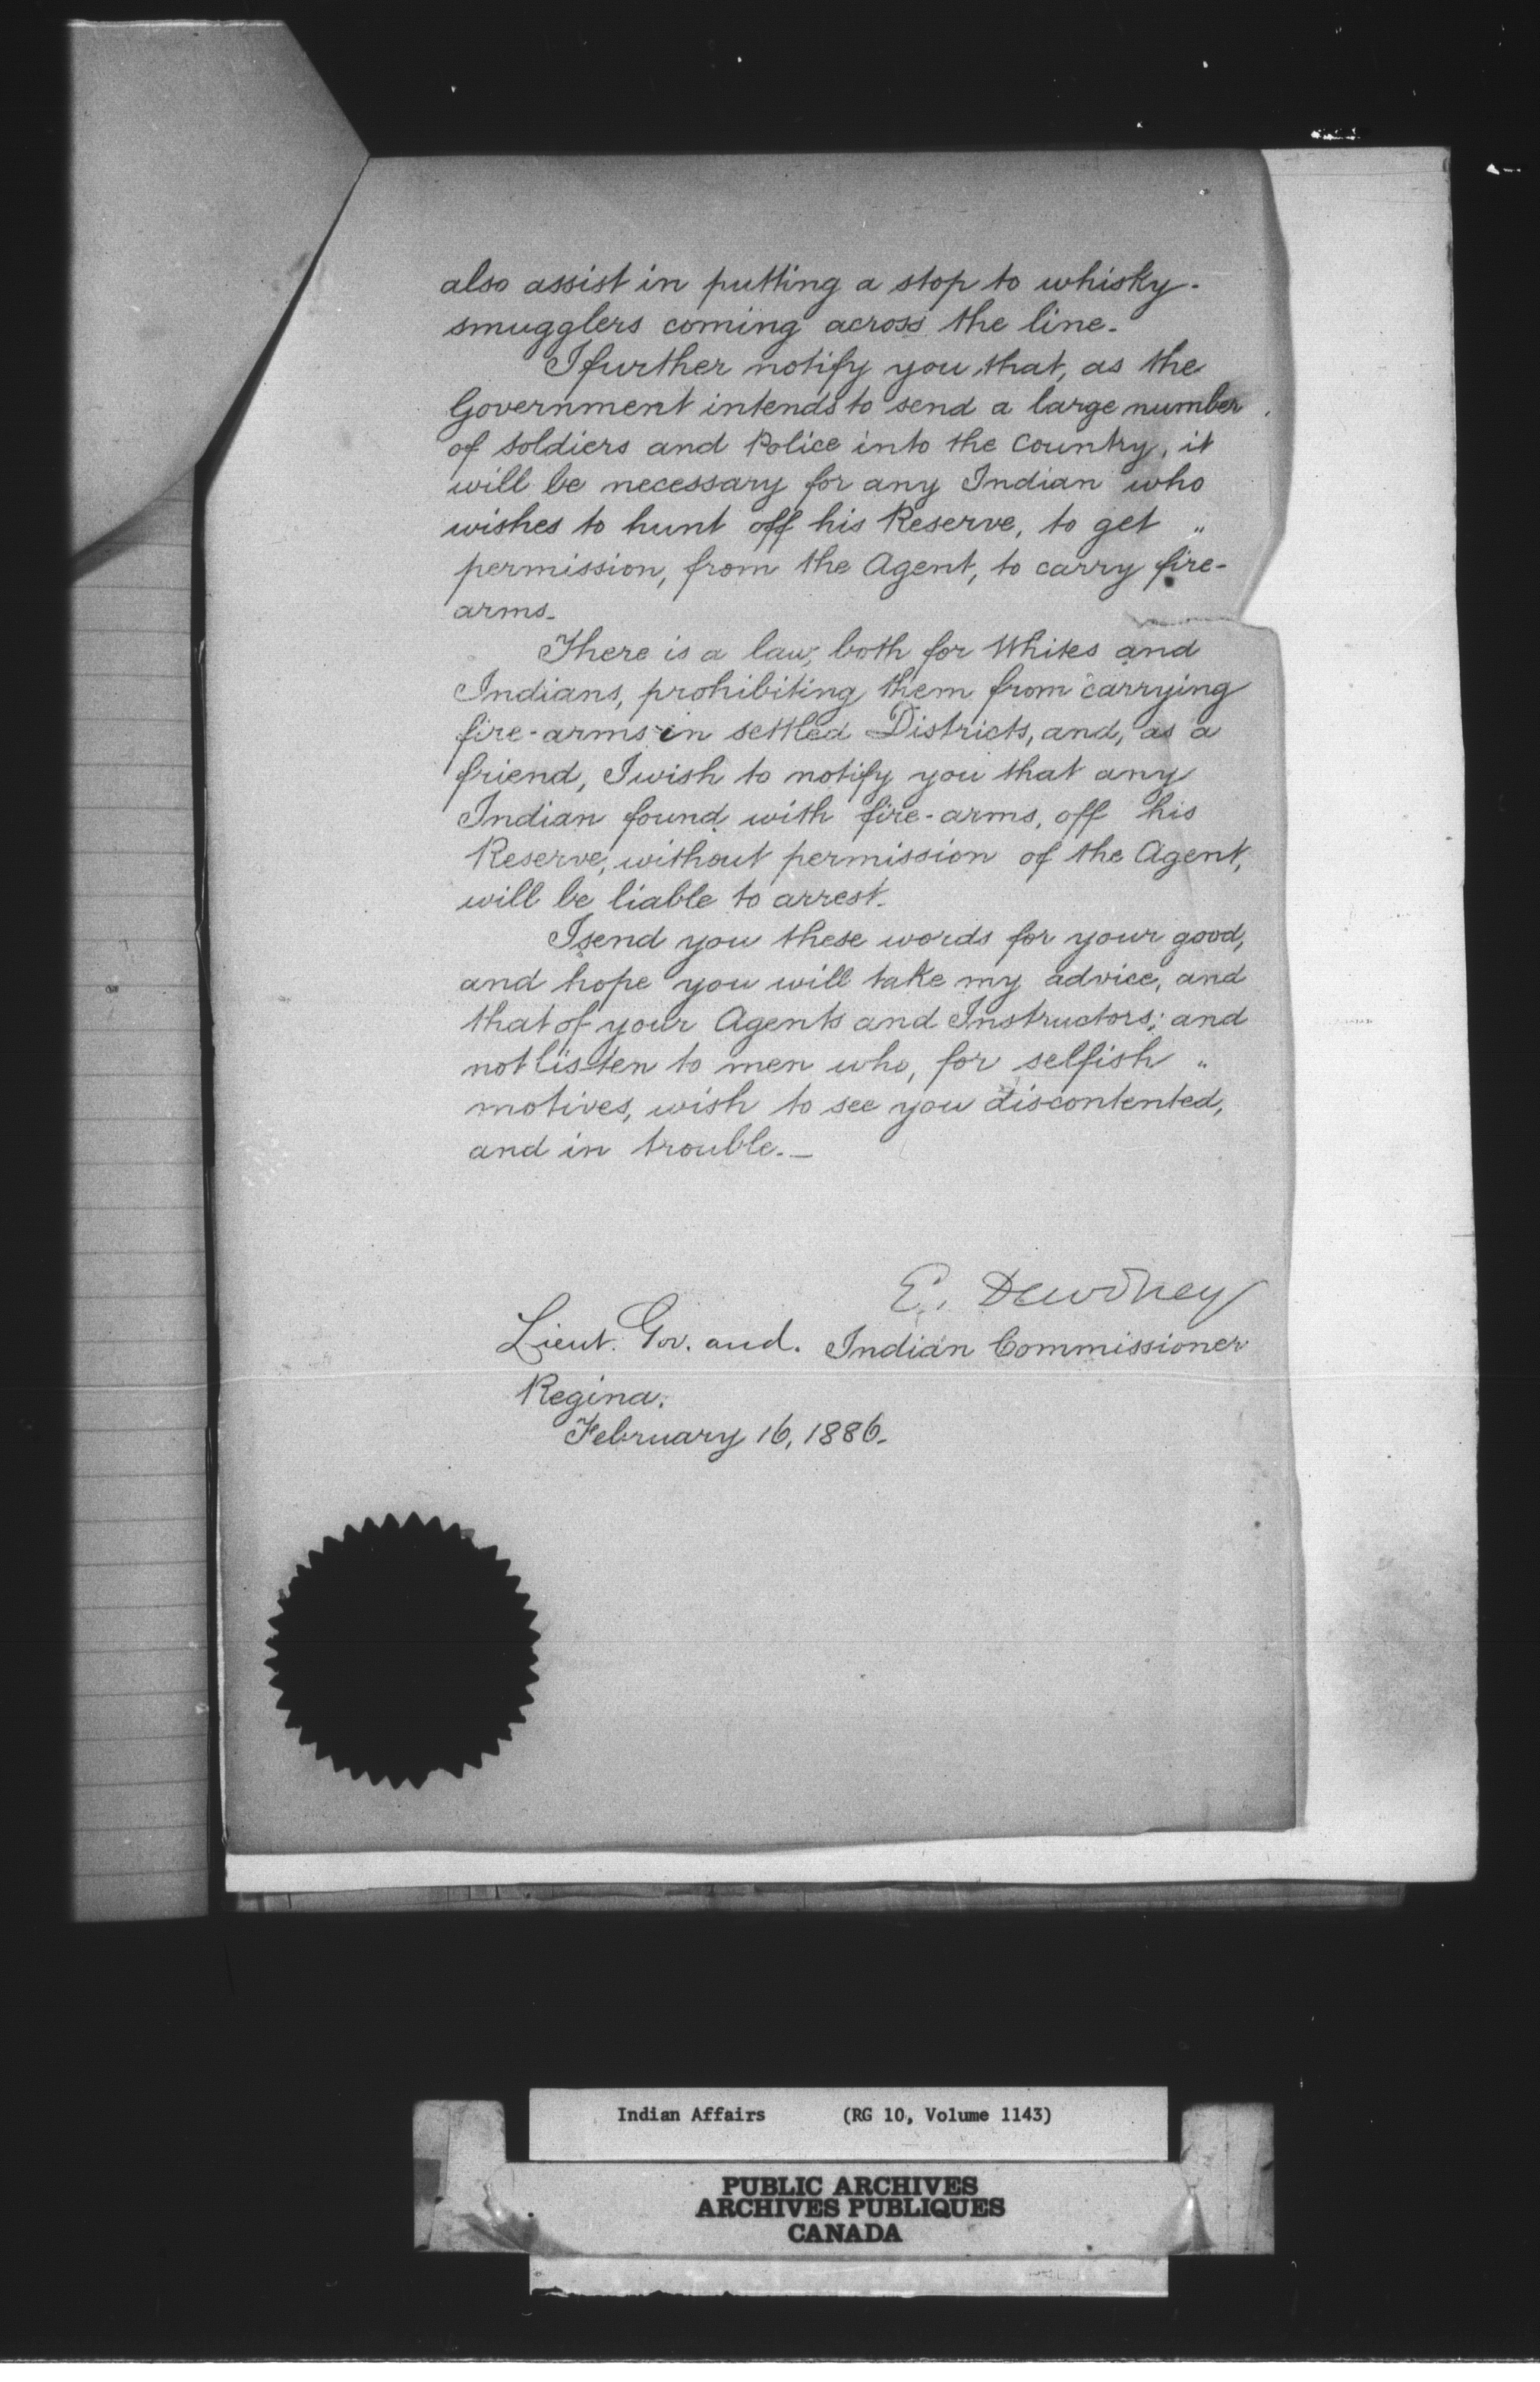 also assist in putting a stop to whisky-
smugglers coming across the line.
I further notify you, that, as the
Government intends to send a large number
of soldiers and Police into the Country, it
will be necessary for any Indian who
wishes to hunt off his Reserve, to get "
permission, from the Agent, to carry fire-
arms.
There is a law, both for Whites and
Indians, prohibiting them from carrying
fire-arms in settled Districts, and, as a
friend, I wish to notify you that any
Indian found with fire-arms, off his
Reserve, without permission of the Agent,
will be liable to arrest.
I send you these words for your good,
and hope you will take my advice, and
that of your Agents and Instructors; and
not listen to men who, for selfish "
motives, wish to see you discontented,
and in trouble._
E. Dewdney
Lieut. Gov. and. Indian Commissioner
Regina.
February 16, 1886.
Indian Affairs (RG 10, Volume 1143)
PUBLIC ARCHIVES
ARCHIVES PUBLIQUES
CANADA